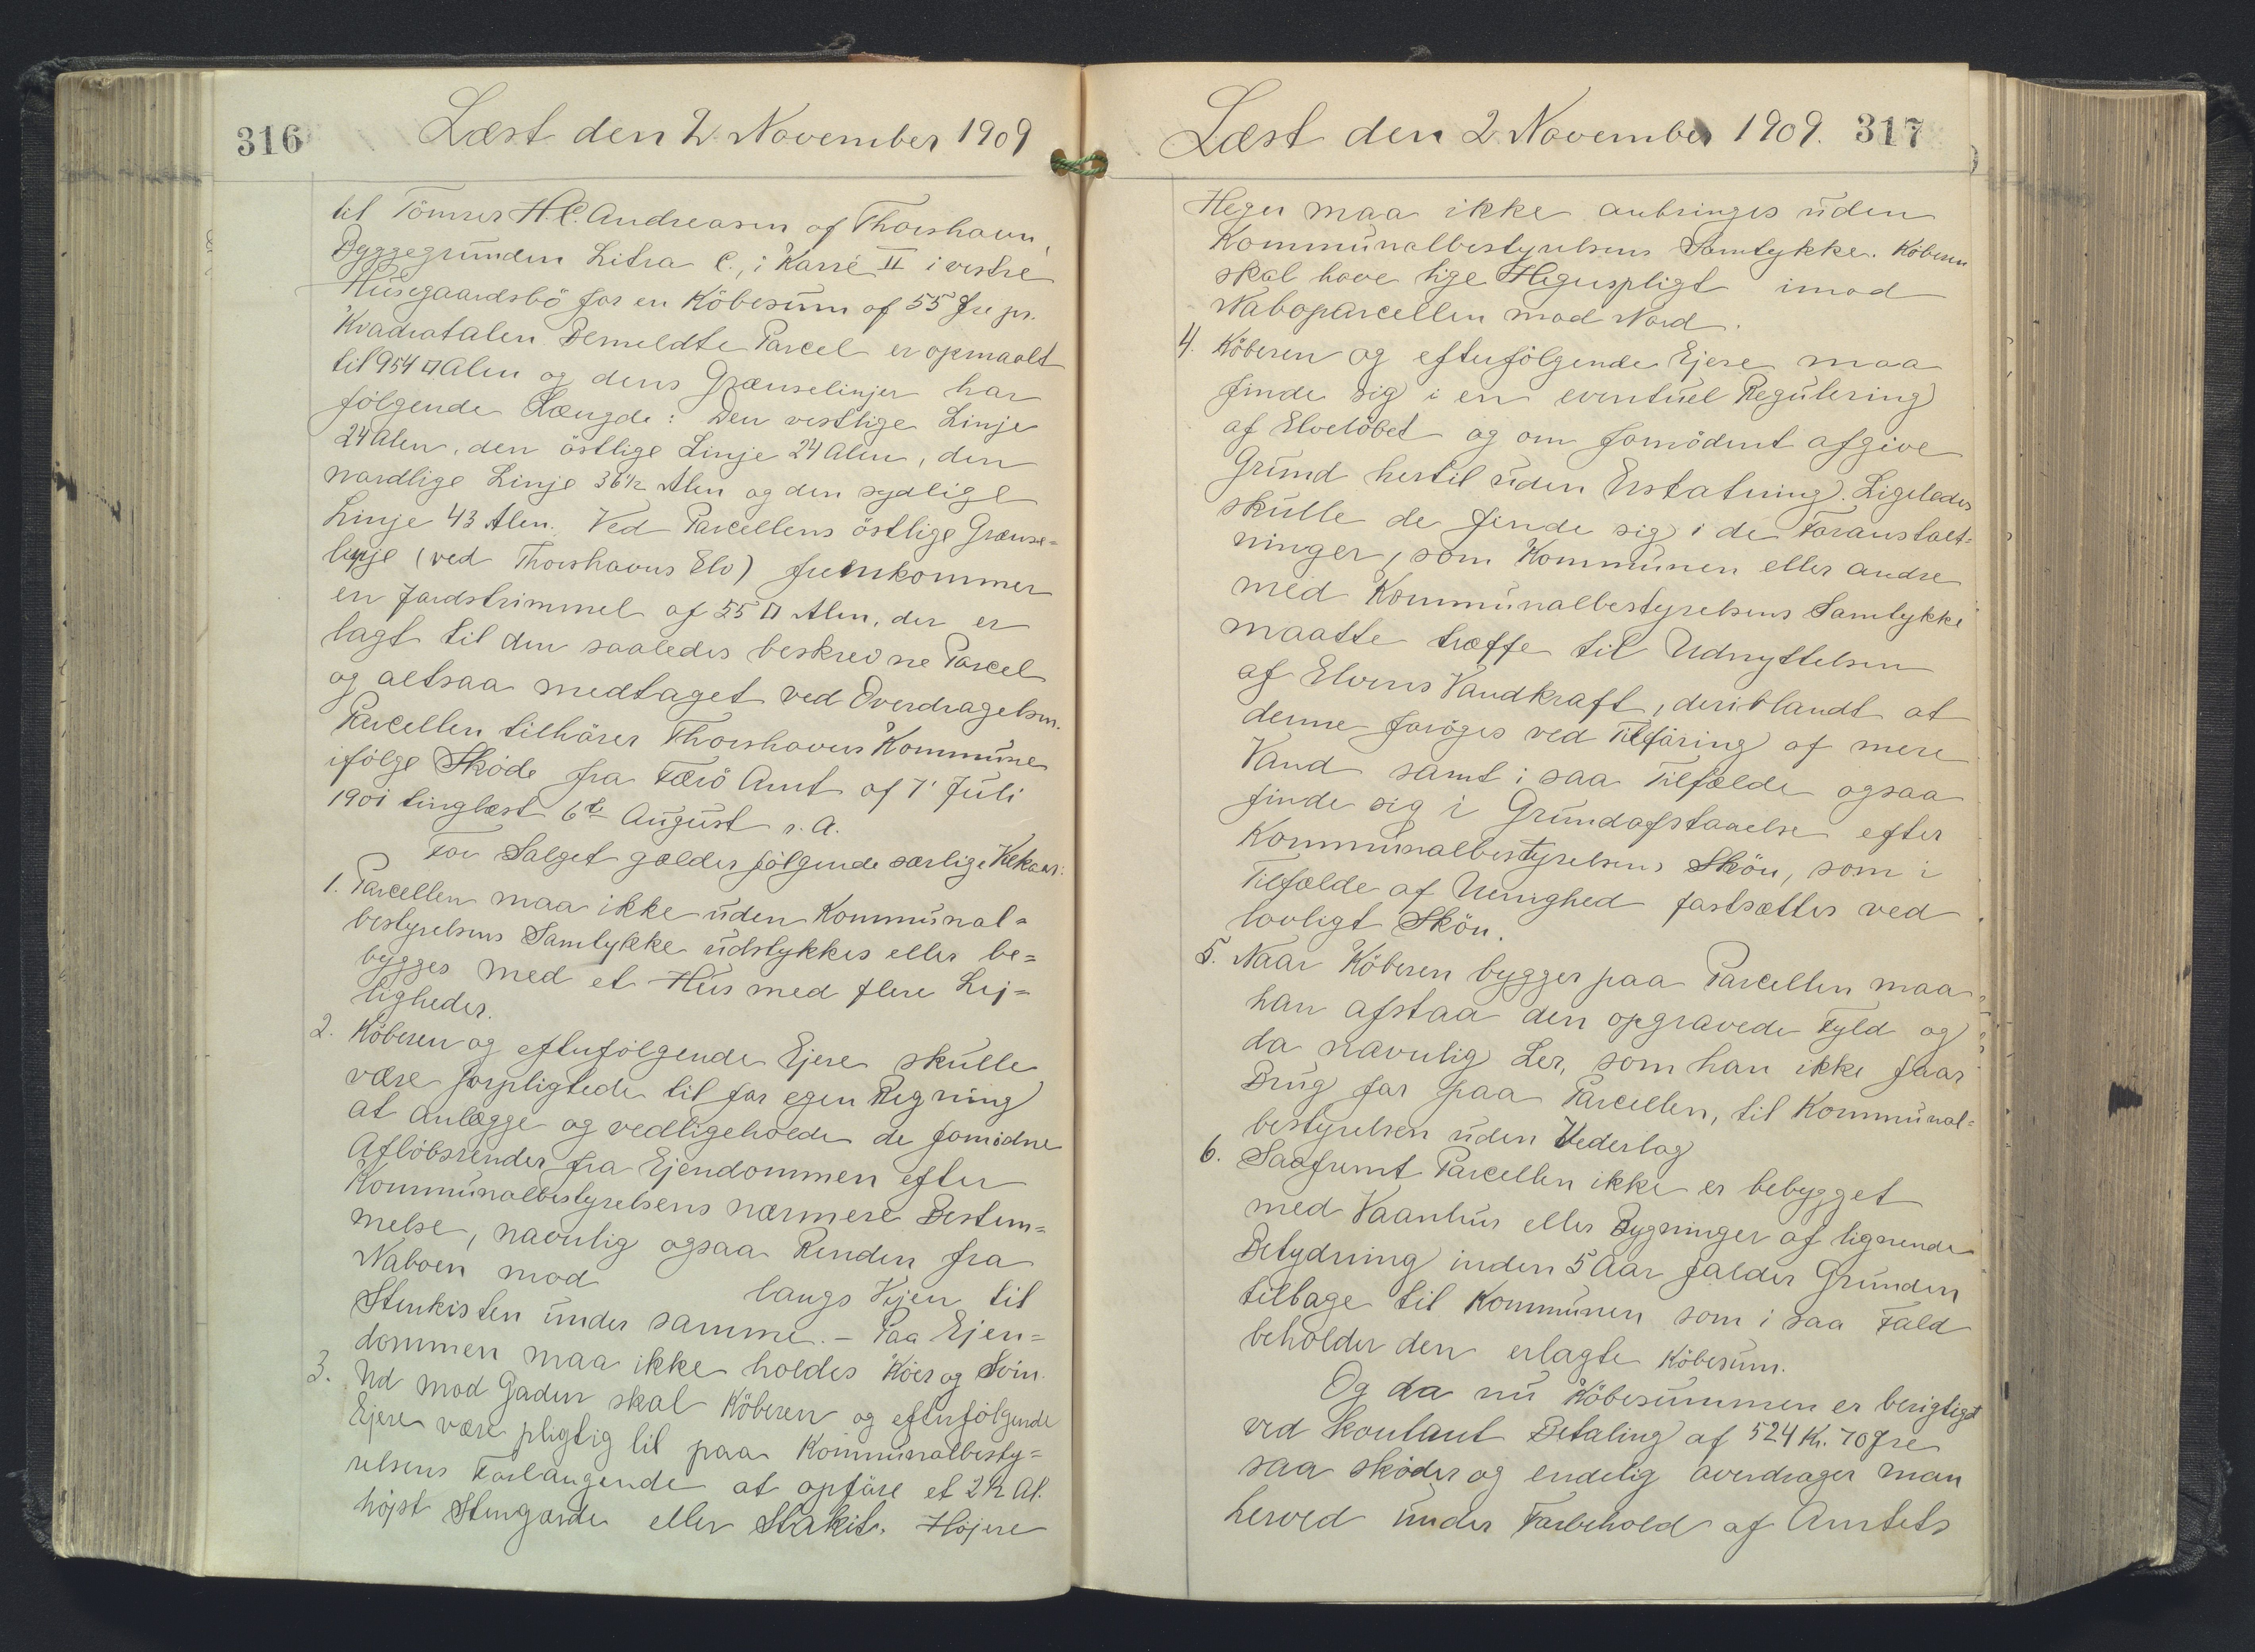 316
Læst den 2 November 1909
til Tömrer H. C. Andreasen af Thorshavn,
Byggegrunden Litra C., i Karré II i vestre
Húsegaardsbö for en Köbesúm af 55 Øre pr.
Kvadratalen Bemeldte Parcel er opmaalt
til 954 □ Alen og dens Grænselinjer har
fölgende Længde: Den vestlige Linje
24 Alen, den östlige Linje 24 Alen, den
nordlige Linje 36 1/2 Alen og den sydlige
Linje 43 Alen. Ved Parcellens östlige Grænse=
linje (ved Thorshavns Elv) fremkommer
en Jordstrimmel af 55 □ Alen, der er
lagt til den saaledes beskrevne Parcel
og altsaa medtaget ved Overdragelsen.
Parcellen tilhörer Thorshavns Kommúne
ifölge Sköde fra Færö Amt af 7' Júli
1901 tinglæst 6te Aúgúst s. A.
For Salget gælder fölgende særlige Vilkaar:
1. Parcellen maa ikke úden Kommúnal=
bestyrelsens Samtykke údstykkes eller be=
bygges med et Hús med flere Lej=
ligheder.
2. Köberen og efterfölgende Ejere skúlle
være forpligtede til for egen Regning
at anlægge og vedligeholde de fornödne
Aflöbsrender fra Ejendommen efter
Kommúnalbestyrelsens nærmere Bestem=
melse, navnlig ogsaa Renden fra
Naboen mod langs Vejen til
Stenkisten únder samme. – Paa Ejen=
dommen maa ikke holdes Köer og Svin.
3. Ud mod Gaden skal Köberen og efterfölgende
Ejere være pligtig til paa Kommúnalbesty=
relsens Forlangende at opföre et 2 1/2 Al.
höjst Stengærde eller Stakit. Höjere
Læst den 2 November 1909. 317
Hegn maa ikke anbringes úden
Kommúnalbestyrelsens Samtykke. Köberen
skal have lige Hegnspligt imod
Naboparcellen mod Nord.
4. Köberen og efterfölgende Ejere maa
finde sig i en eventúel Regúlering
af Elvelöbet og om fornödent afgive
Grúnd hertil úden Erstatning. Ligeledes
skúlle de finde sig i de Foranstalt=
ninger, som Kommúnen eller andre
med Kommúnalbestyrelsens Samtykke
maatte træffe til Udnyttelsen
af Elvens Vandkraft, deriblandt at
denne foröges ved Tilföring af mere
Vand samt i saa Tilfælde ogsaa
finde sig i Grúndafstaaelse efter
Kommúnalbestyrelsens Skön, som i
Tilfælde af Uenighed fastsættes ved
lovligt Skön.
5. Naar Köberen bygger paa Parcellen maa
han afstaa den opgravede Fyld og
da navnlig Ler, som han ikke faar
Brúg for paa Parcellen, til Kommúnal=
bestyrelsen úden Vederlag
6. Saafremt Parcellen ikke er bebygget
med Vaanhús eller Bygninger af lignende
Betydning inden 5 Aar falder Grúnden
tilbage til Kommúnen som i saa Fald
beholder den erlagte Köbesúm.
Og da nú Köbesúmmen er berigtiget
ved kontant Betaling af 524 Kr. 70 Øre
saa sköder og endelig overdrager man
herved únder Forbehold af Amtets